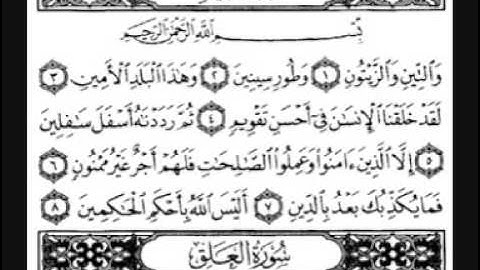 بِسْمِ ٱللَّهِ ٱلرَّحْمَٰنِ ٱلرَّحِيمِ
وَٱلتِّينِ وَٱلزَّيْتُونِ ١ وَطُورِ سِينِينَ ٢ وَهَٰذَا ٱلْبَلَدِ ٱلْأَمِينِ ٣
لَقَدْ خَلَقْنَا ٱلْإِنسَٰنَ فِىٓ أَحْسَنِ تَقْوِيمٍ ٤ ثُمَّ رَدَدْنَٰهُ أَسْفَلَ سَٰفِلِينَ
٥ إِلَّا ٱلَّذِينَ ءَامَنُوا۟ وَعَمِلُوا۟ ٱلصَّٰلِحَٰتِ فَلَهُمْ أَجْرٌ غَيْرُ مَمْنُونٍ ٦
فَمَا يُكَذِّبُكَ بَعْدُ بِٱلدِّينِ ٧ أَلَيْسَ ٱللَّهُ بِأَحْكَمِ ٱلْحَٰكِمِينَ ٨
سُورَةُ ٱلْعَلَقِ